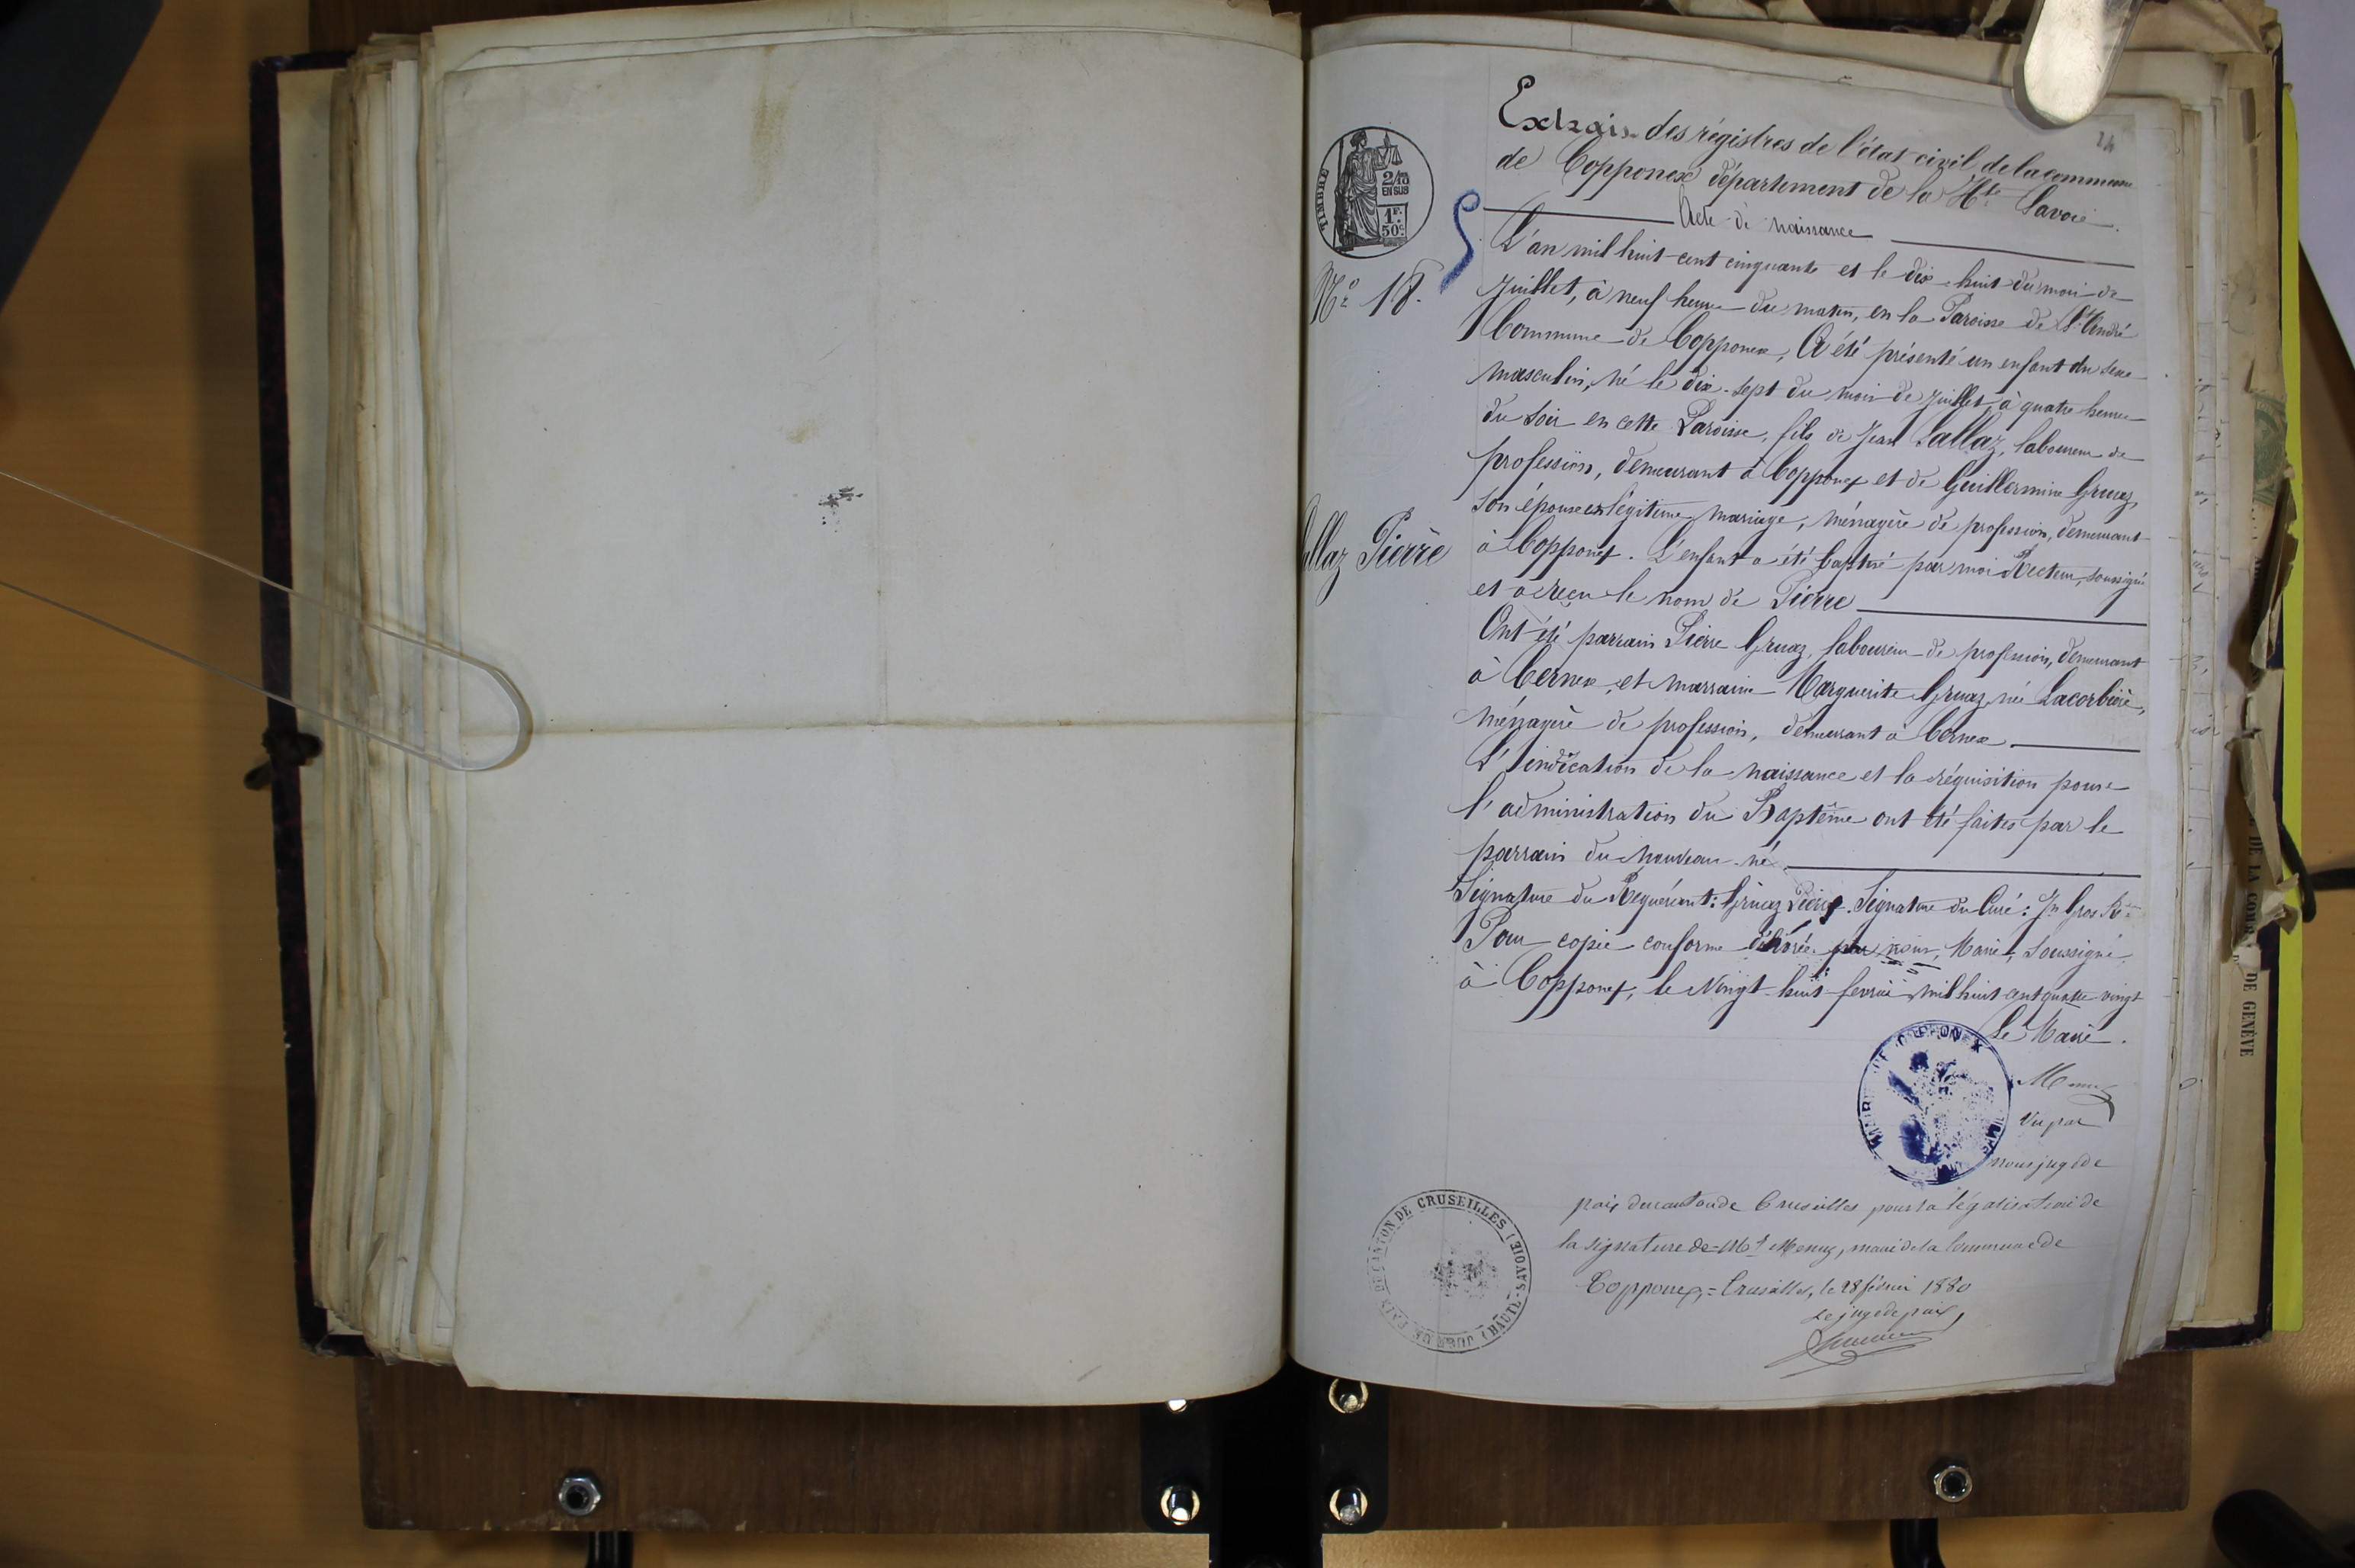 24
Extrait des régistres de l'état civil, de la commune
de Copponex département de la Hte Savoie.
Acte de naissance
TIMBRE
2/10
EN SUS
1F.
50c
No 18.
L'an mil huit cent cinquante et le dix-huit du moi de
Juillet, à neuf heure du matin, en la Paroisse de St André
Commune de Copponex, A été présenté un enfant du sexe
masculin, né le dix-sept du mois de Juillet, à quatre heure
du soir en cette Paroisse, fils de Jean Sallaz, laboureur de
profession, demeurant à Copponex et de Guillermine Gruaz,
son épouse en légitime mariage, ménagère de profession, demeurant
allaz Pierre
à Copponex. L'enfant a été baptisé par moi Recteur, soussigné
et a reçu le nom de Pierre
Ont été parrain Pierre Gruaz, laboureur de profession, demeurant
à Cernex, et marraine Marguerite Gruaz, née Lacorbière,
ménagère de profession, demeurant à Cernex
L'indication de la naissance et la réquisition pour
l'administration du Baptême ont été faites par le
parrain du nouveau-né
Signature du Requérant: Gruaz Pierre. Signature du Curé: Jn Gros
Pour copie conforme délivrée par nous, Maire, soussigné
à Copponex, le Vingt-huit fevrier mil huit cent quatre vingt
Le Maire.
MAIRIE DE COPPONEX
Vu par
nous juge de
paix du canton de Cruseilles pour la légalisation de
la signature de Mr Menuz, maire de la Commune de
Copponex, = Cruseilles, le 28 février 1880
Le juge de paix,
JUGE DE PAIX DU CANTON DE CRUSEILLES (HAUTE-SAVOIE)
DE LA COUR
DE GENÈVE